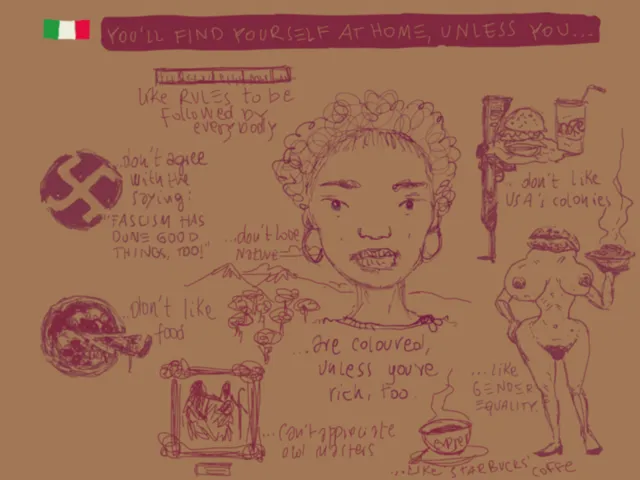 YOU'LL FIND YOURSELF AT HOME, UNLESS YOU...
like RULES to be
followed by
everybody
...don't agree
with the
saying:
"FASCISM HAS
DONE GOOD
THINGS, TOO!"
...don't love
nature
...don't like
food
...can't appreciate
old masters
...are coloured,
unless you're
rich, too
... don't like
USA's colonies
...like
GENDER
EQUALITY.
...LIKE STARBUCKS' COFFE